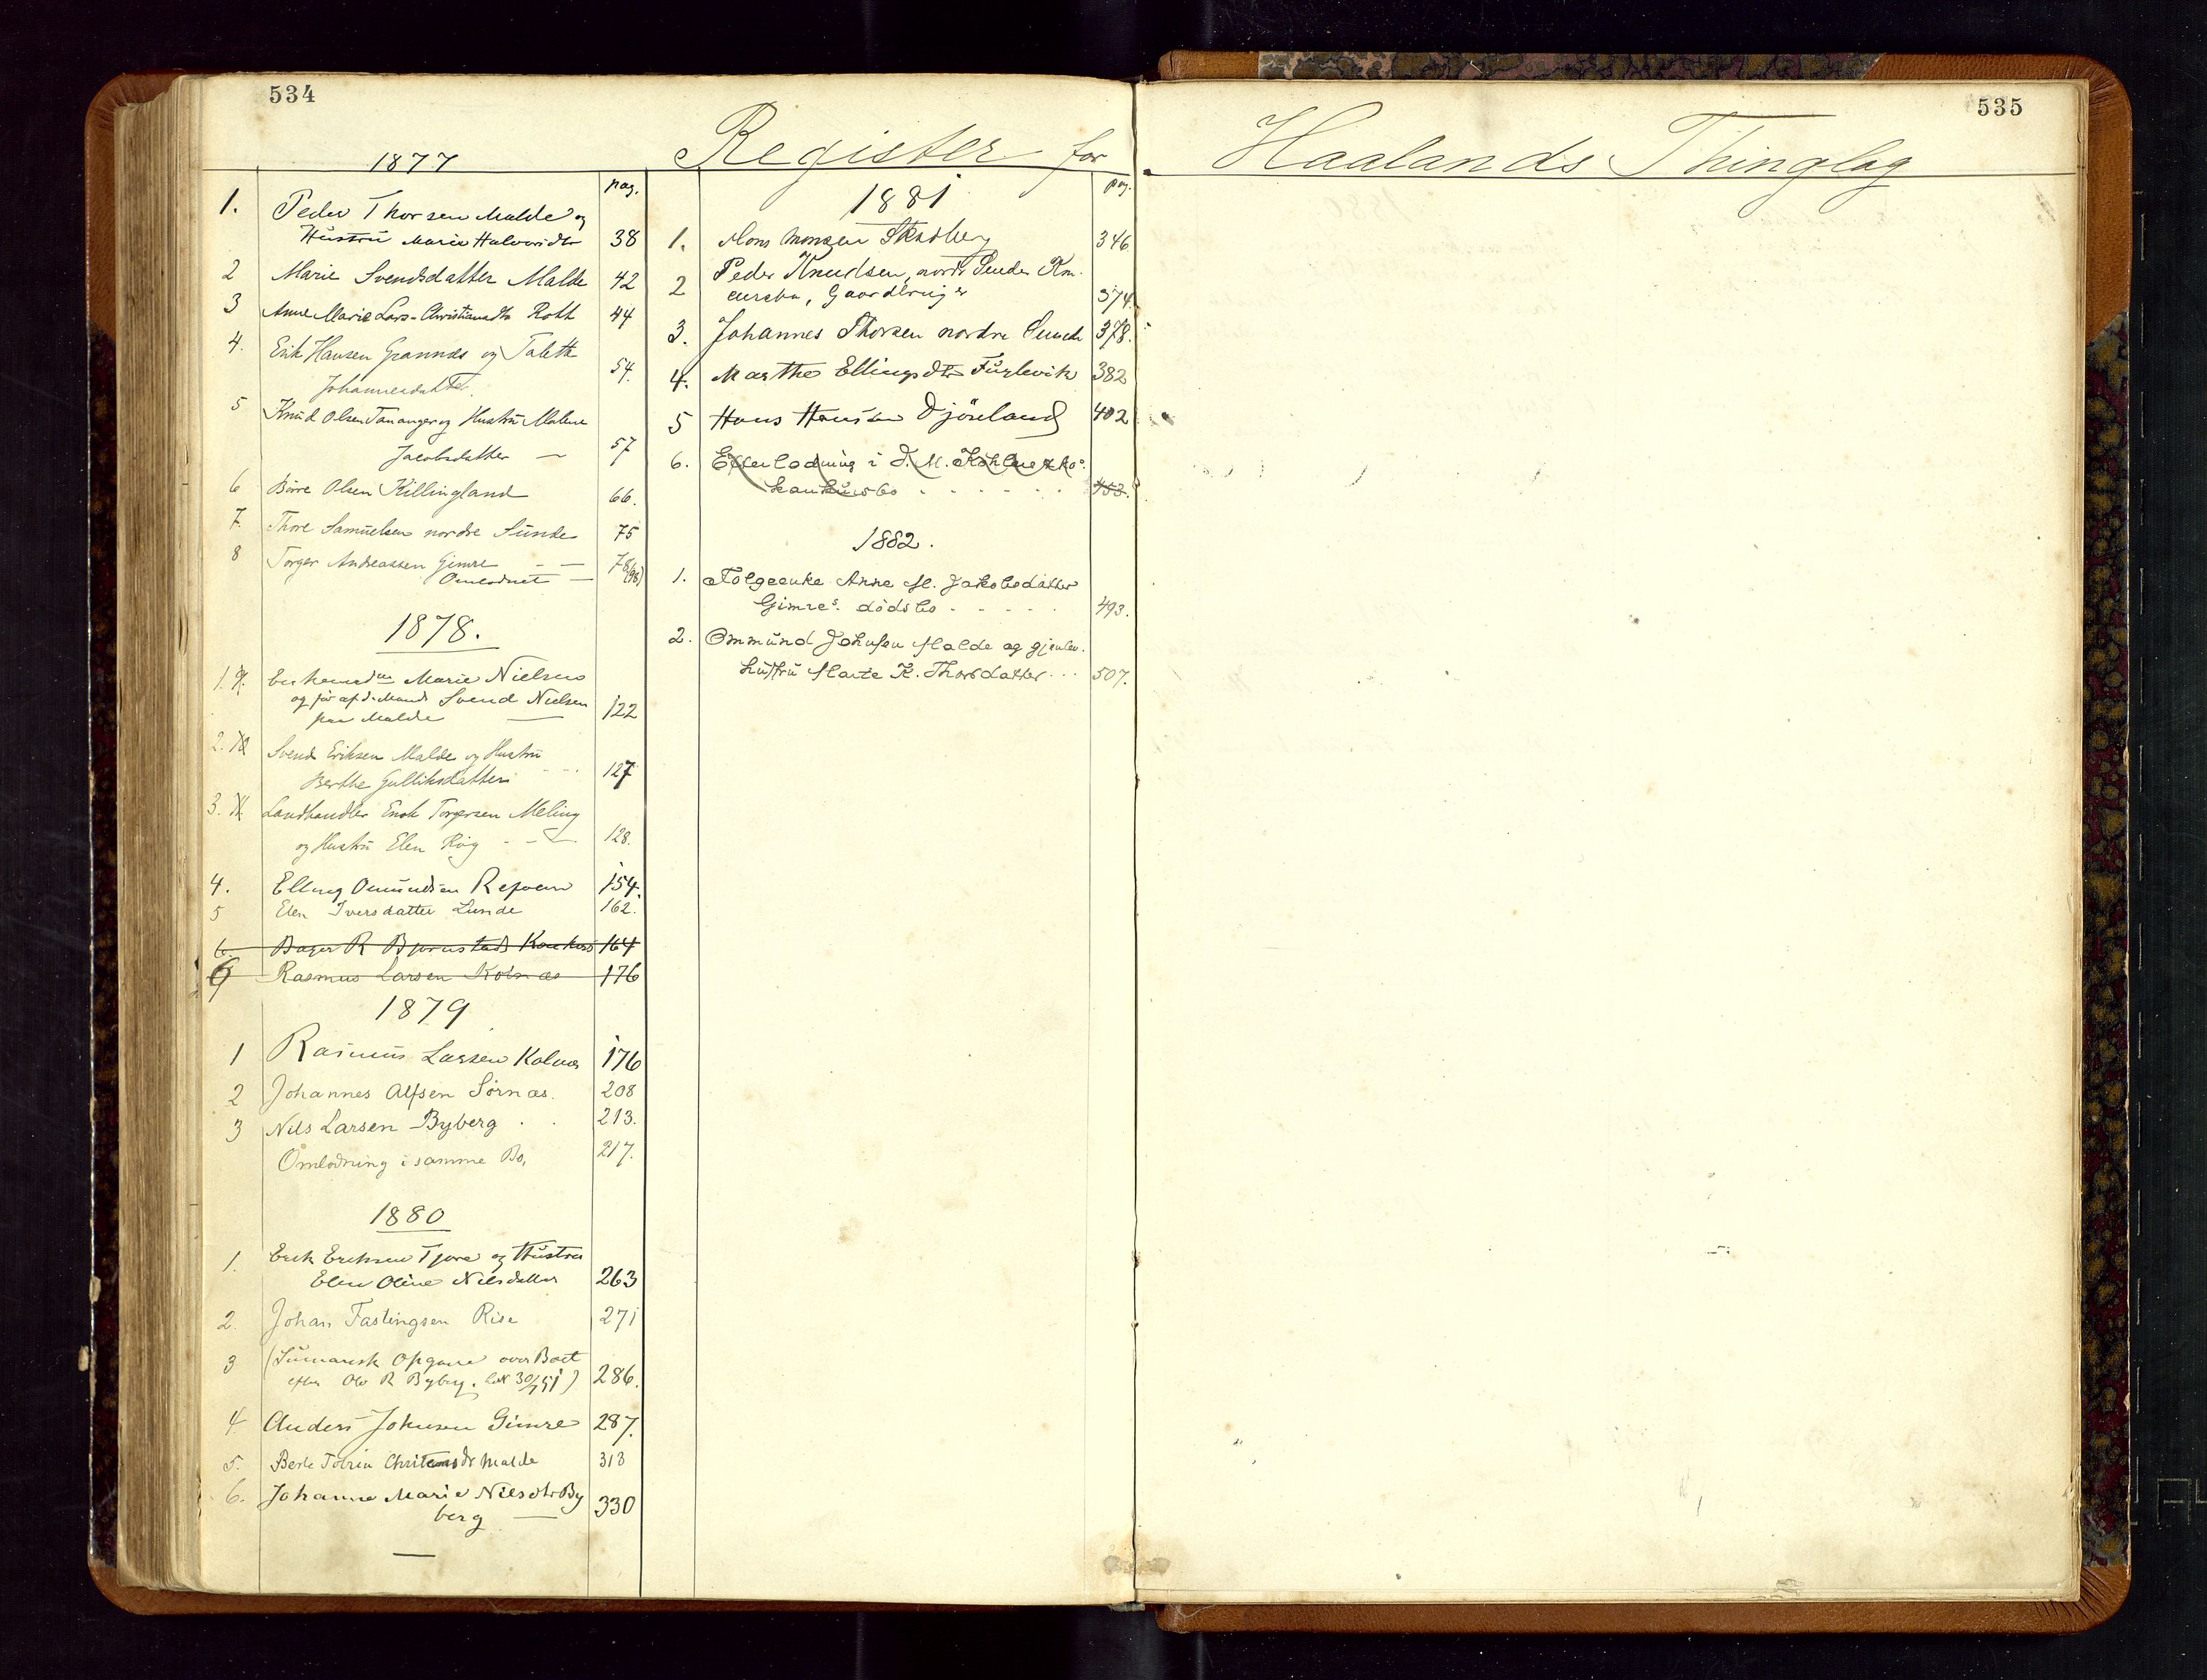 534
535
Register for Haalands Thinglag
1877
pag.
1. Peder Thorsen Malde og
Hustru Marie Halvorsdtr 38
2 Marie Svendsdatter Malde 42
3 Anne Marie Lars-Christiansdtr Roth 44
4. Erik Hansen Grannes og Talette
Johannesdatter 54.
5 Knud Olsen Tananger og Hustru Malene
Jacobsdatter — 57
6 Börre Olsen Killingland 66.
7. Thore Samuelsen nordre Sunde 75
8 Torger Andreassen Gimre — —
Omlodnet — 78 (98)
1878.
1. Marie Nielsen
og før afd. Mand Svend Nielsen
paa Malde — 122
2. Svend Eriksen Malde og Hustru
Berthe Gulliksdatter 127
3. Landhandler Enok Torgersen Meling
og Hustru Elen Roig - - 128.
4. Elling Omundsen Refven 154.
5 Elen Iversdatter Lunde 162.
6. Bager R Bjørnstads Konkurs 164
6 Rasmus Larsen Kolnæs 176
1879
1 Rasmus Larsen Kolnæs 176
2 Johannes Alfsen Sörnæs. 208
3 Nils Larsen Byberg . . 213.
Omlodning i samme Bo, 217.
1880
1. Erik Eriksen Tjora og Hustru
Elen Oline Nilsdatter 263
2. Johan Fastingsen Rise 271
3 (Sumarisk Opgave over Boet
efter Ole R Byberg. 286.
4 Anders Johnsen Gimre 287.
5. Berte Tobria Malde 313
6. Johanne Marie Nilsdtr By
berg — 330
pag.
1881
1. Mons Monsen Skadberg 346
2 Peder Knudsen, nordr Sunde
Gaardbruger 374.
3. Johannes Thorsen nordre Sunde 378.
4. Marthe Ellingsdtr Fuglevik 382
5 Hans Hansen Djöseland 402
6. Efterlodning i J. M. Köhler & Ko.
konkursbo . . . . . . 453.
1882.
1. Følgeenke Anne M. Jakobsdatter
Gimres. dödsbo . . . . . 493.
2. Ommund Johnsen Malde og gjenlev.
hustru Marte K. Thorsdatter . . . 507.